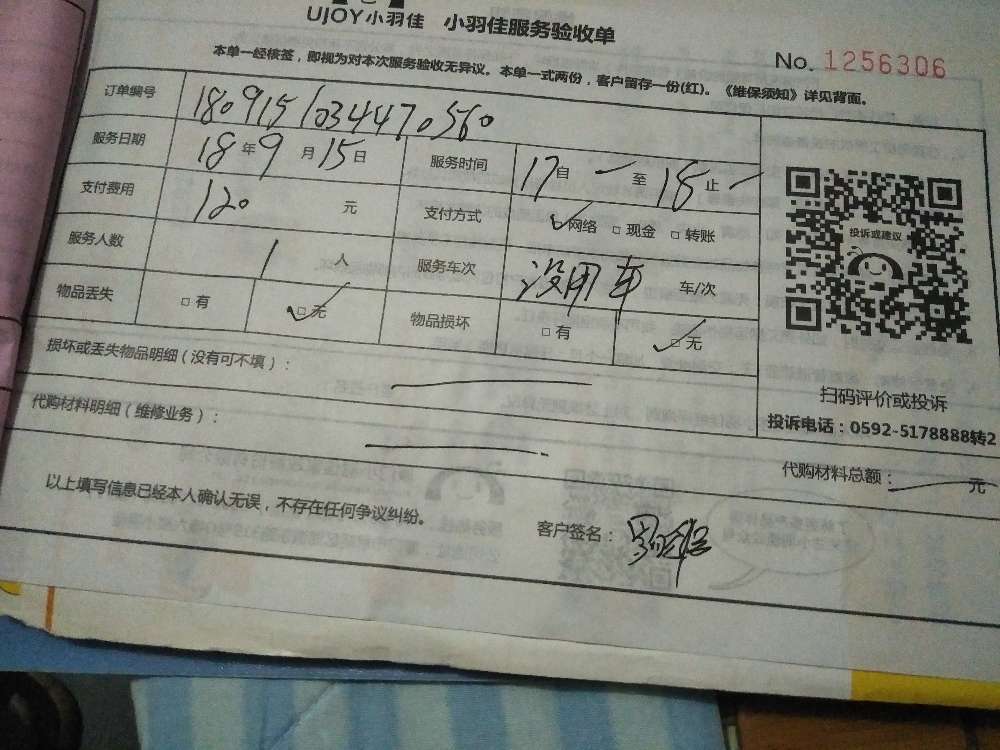 UJOY小羽佳 小羽佳服务验收单
No. 1256306
本单一经核签，即视为对本次服务验收无异议。本单一式两份，客户留存一份(红)。《维保须知》详见背面。
订单编号 1809151034470560
服务日期 18年9月15日 服务时间 17自一至18止一
支付费用 120元 支付方式 ☑网络 □现金 □转账
服务人数 1人 服务车次 没用车 车/次
物品丢失 □有 ☑无 物品损坏 □有 ☑无
损坏或丢失物品明细(没有可不填)：
代购材料明细(维修业务)：
投诉或建议
扫码评价或投诉
投诉电话：0592-5178888转2
代购材料总额： 元
以上填写信息已经本人确认无误，不存在任何争议纠纷。
客户签名：